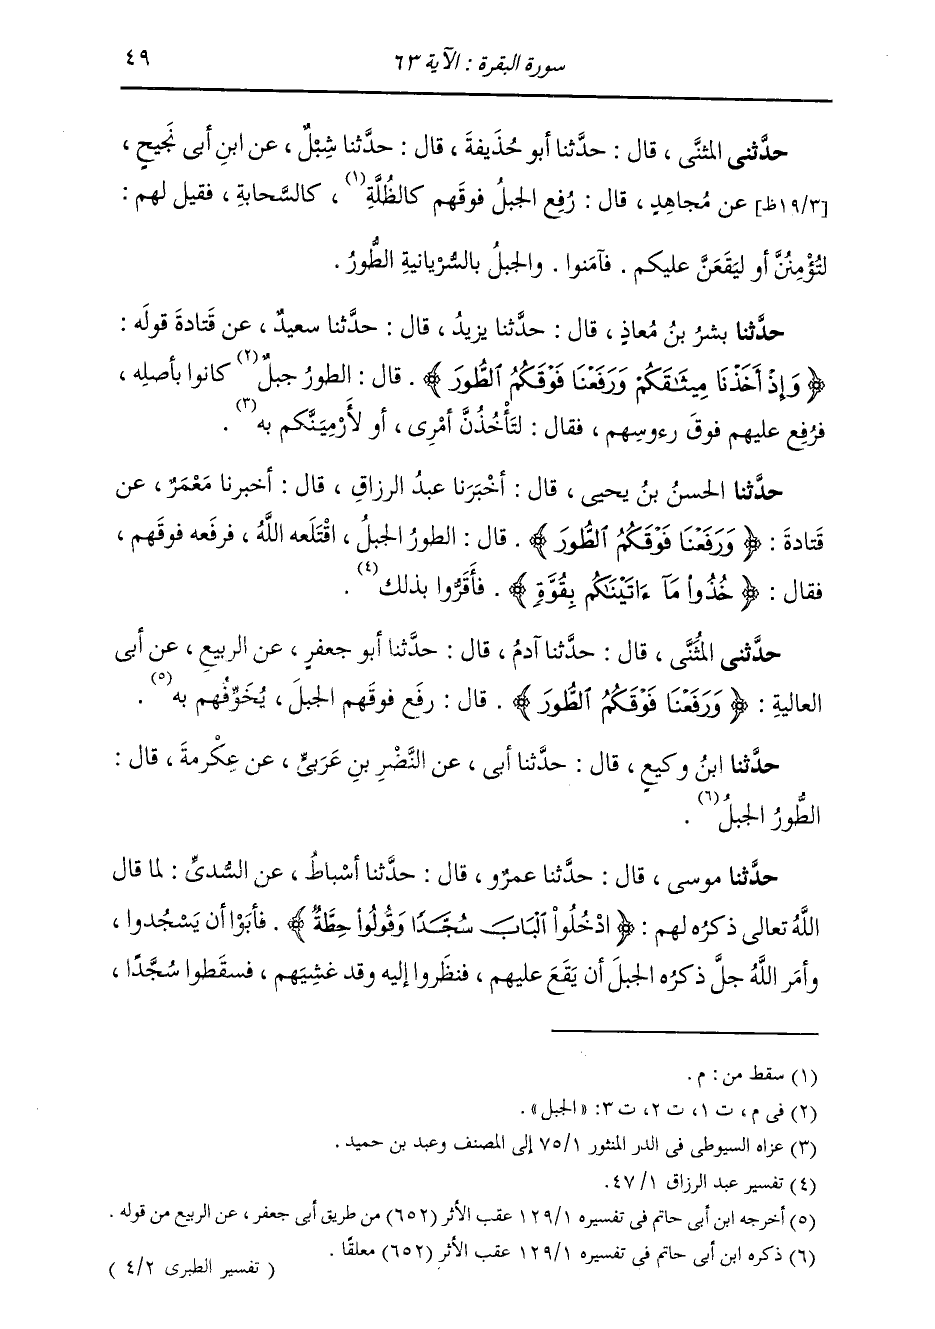 سورة البقرة : الآية ٦٣
٤٩
حدَّثنى المثنَّى ، قال : حدَّثنا أبو حُذَيفةَ ، قال : حدَّثنا شِبْلٌ ، عن ابنِ أبى نَجيحٍ ،
[١٩/٣ظ] عن مُجاهدٍ ، قال : رُفِع الجبلُ فوقَهم كالظُّلَّةِ(١) ، كالسَّحابةِ ، فقيل لهم :
لتُؤْمِنُنَّ أو ليَقَعَنَّ عليكم . فآمَنوا . والجبلُ بالسُّرْيانيةِ الطُّورُ .
حدَّثنا بشرُ بنُ مُعاذٍ ، قال : حدَّثنا يزيدُ ، قال : حدَّثنا سعيدٌ ، عن قَتادةَ قولَه :
﴿ وَإِذْ أَخَذْنَا مِيثَٰقَكُمْ وَرَفَعْنَا فَوْقَكُمُ ٱلطُّورَ ﴾ . قال : الطورُ جبلٌ(٢) كانوا بأصلِه ،
فرُفِع عليهم فوقَ رءوسِهم ، فقال : لتَأْخُذُنَّ أمْرِى ، أو لأَرْمِيَنَّكم به(٣) .
حدَّثنا الحسنُ بنُ يحيى ، قال : أخْبَرَنا عبدُ الرزاقِ ، قال : أخبرنا مَعْمَرٌ ، عن
قَتادةَ : ﴿ وَرَفَعْنَا فَوْقَكُمُ ٱلطُّورَ ﴾ . قال : الطورُ الجبلُ ، اقْتَلَعه اللَّهُ ، فرفَعه فوقَهم ،
فقال : ﴿ خُذُواْ مَآ ءَاتَيْنَٰكُم بِقُوَّةٍ ﴾ . فأَقَرُّوا بذلك(٤) .
حدَّثنى المثُنَّى ، قال : حدَّثنا آدمُ ، قال : حدَّثنا أبو جعفرٍ ، عن الربيعِ ، عن أبى
العاليةِ : ﴿ وَرَفَعْنَا فَوْقَكُمُ ٱلطُّورَ ﴾ . قال : رفَع فوقَهم الجبلَ ، يُخَوِّفُهم به(٥) .
حدَّثنا ابنُ وكيعٍ ، قال : حدَّثنا أبى ، عن النَّضْرِ بنِ عَرَبىٍّ ، عن عِكْرمةَ ، قال :
الطُّورُ الجبلُ(٦) .
حدَّثنا موسى ، قال : حدَّثنا عمرٌو ، قال : حدَّثنا أسْباطُ ، عن السُّدىِّ : لما قال
اللَّهُ تعالى ذكرُه لهم : ﴿ ادْخُلُواْ ٱلْبَابَ سُجَّدًا وَقُولُواْ حِطَّةٌ ﴾ . فأبَوْا أن يَسْجُدوا ،
وأمَر اللَّهُ جلَّ ذكرُه الجبلَ أن يَقَعَ عليهم ، فنظَروا إليه وقد غشِيَهم ، فسقَطوا سُجَّدًا ،
(١) سقط من : م .
(٢) فى م ، ت ١، ت ٢، ت ٣: «الجبل» .
(٣) عزاه السيوطى فى الدر المنثور ٧٥/١ إلى المصنف وعبد بن حميد .
(٤) تفسير عبد الرزاق ١/ ٤٧.
(٥) أخرجه ابن أبى حاتم فى تفسيره ١٢٩/١ عقب الأثر (٦٥٢) من طريق أبى جعفر ، عن الربيع من قوله .
(٦) ذكره ابن أبى حاتم فى تفسيره ١٢٩/١ عقب الأثر (٦٥٢) معلقًا .
( تفسير الطبرى ٤/٢ )